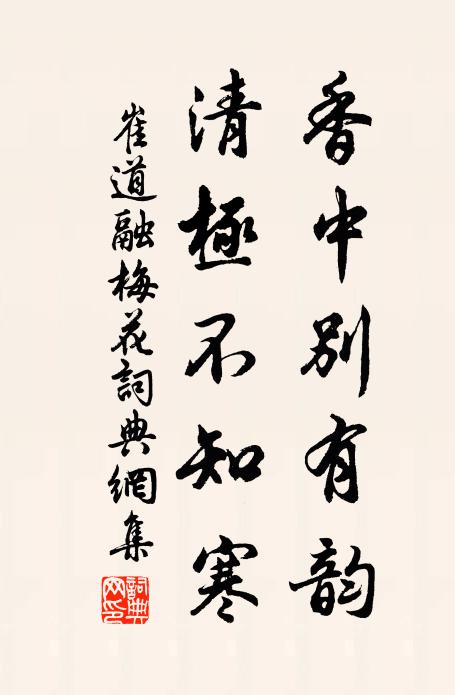 香中別有韵
清極不知寒
崔道融梅花詞典網集
詞典网印